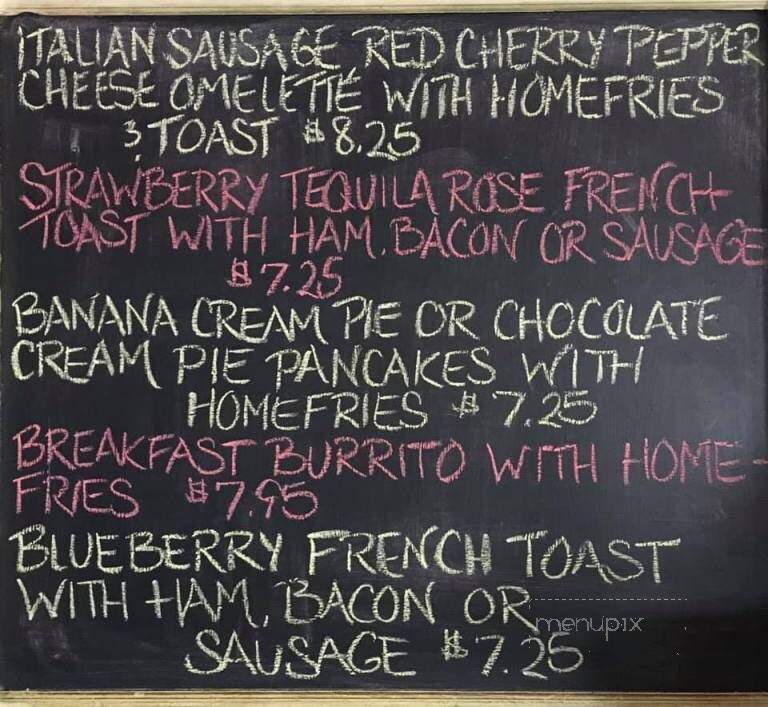 ITALIAN SAUSAGE RED CHERRY PEPPER
CHEESE OMELETTE WITH HOMEFRIES
& TOAST $8.25
STRAWBERRY TEQUILA ROSE FRENCH
TOAST WITH HAM, BACON OR SAUSAGE
$7.25
BANANA CREAM PIE OR CHOCOLATE
CREAM PIE PANCAKES WITH
HOMEFRIES $7.25
BREAKFAST BURRITO WITH HOME-
FRIES $7.95
BLUEBERRY FRENCH TOAST
WITH HAM, BACON OR
menupix
SAUSAGE $7.25